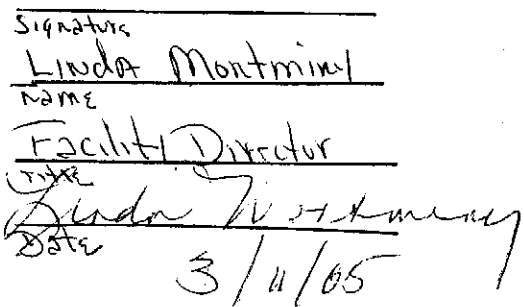 Signature
Linda Montminy
Name
Facility Director
Title
Linda Montminy
Date
3/11/05